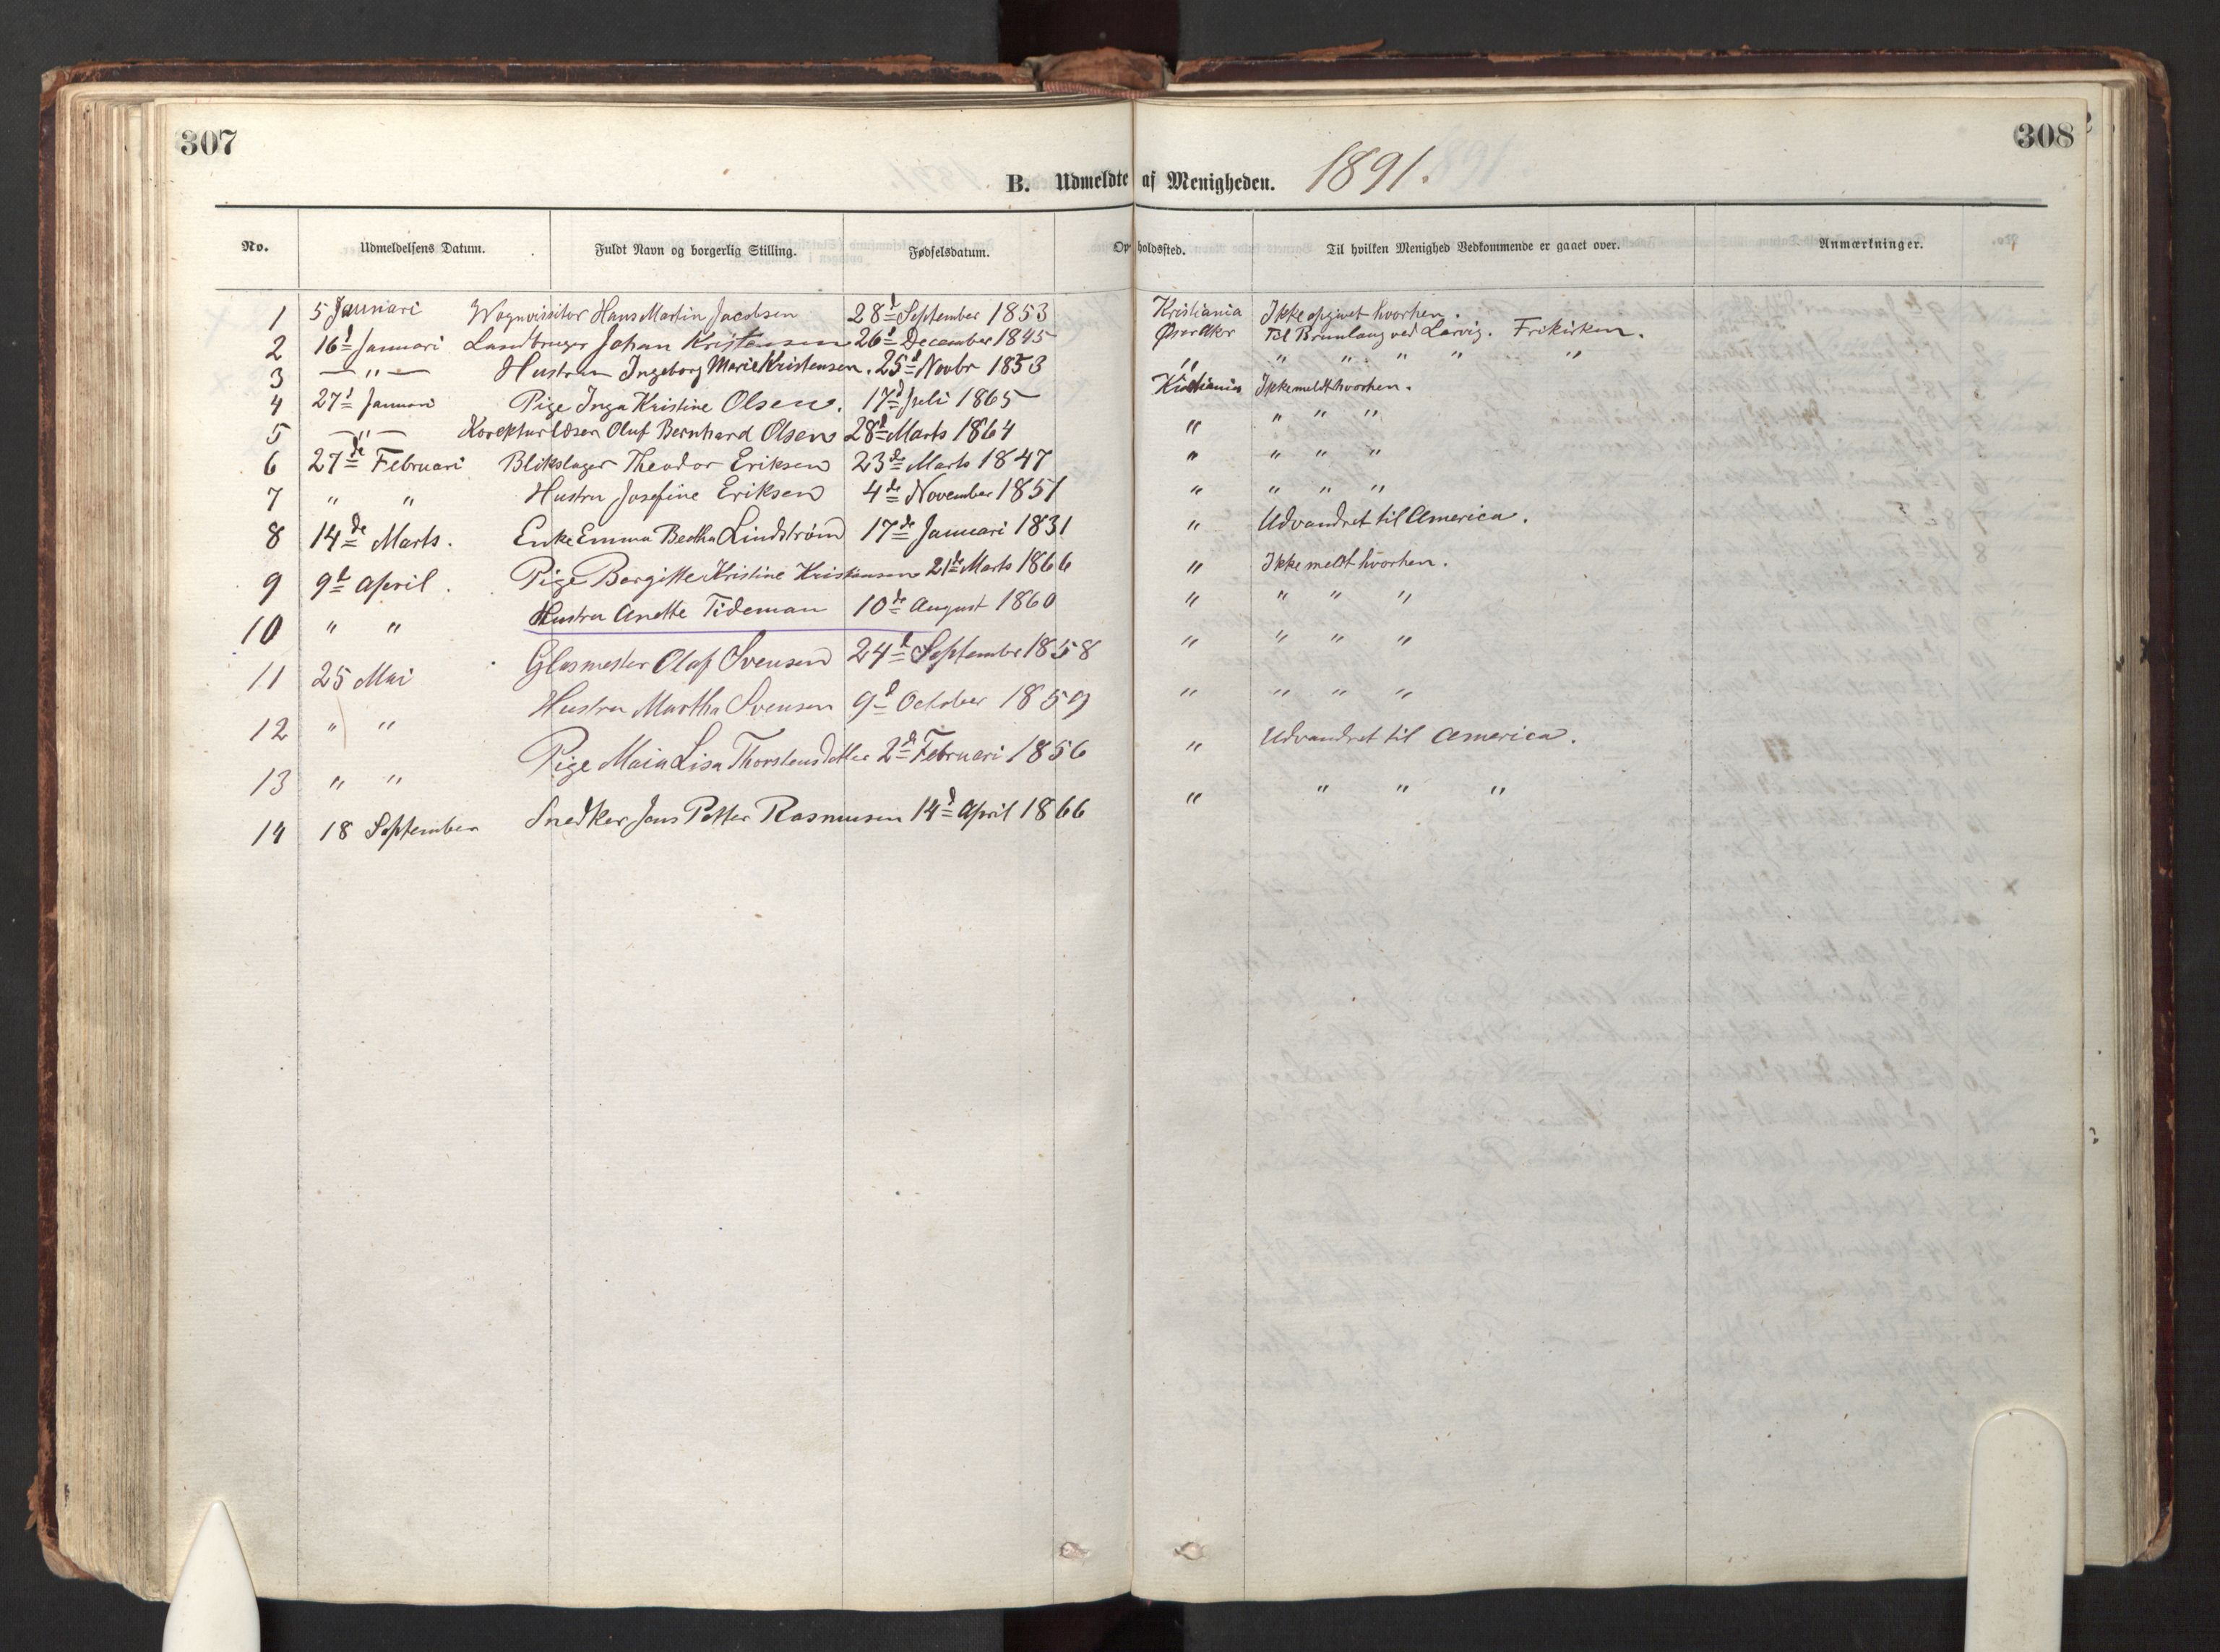 307
308
B. Udmeldte af Menigheden. 1891.
No. Udmeldelsens Datum. Fuldt Navn og borgerlig Stilling. Fødselsdatum. Opholdssted. Til hvilken Menighed Vedkommende er gaaet over. Anmærkninger.
1 5 Januari Wognvisitor Hans Martin Jacobsen 28d September 1853 Kristiania Ikke opgivet hvorhen.
2 16d Januari Landbruger Johan Kristensen 26d December 1845 Til Brunlang ved Larvig. Frikirken.
3 — " — Hustru Ingeborg Marie Kristensen. 25d Novbr 1853 " " " " " "
4 27d Januari Pige Inga Kristine Olsen. 17d Juli 1865 Kristiania Ikke meldt hvorhen.
5 — " — Korekturlæser Oluf Bernhard Olsen 28d Marts 1864 " " " "
6 27de Februari Blikslager Theodor Eriksen 23de Marts 1847 " " " "
7 " " Hustru Josefine Eriksen 4de November 1851 " " " "
8 14de Marts. Enke Emma Bertha Lindstrøm 17de Januari 1831 " Udvandret til America.
9 9d April. Pige Borgitte Kristine Kristiansen 21de Marts 1866 " Ikke meldt hvorhen.
10 " " Hustru Anette Tideman 10de August 1860 " " " "
11 25 Mai Glasmester Olaf Svensen 24d September 1858 " " " "
12 " " Hustru Martha Svensen 9d October 1859 " " " "
13 " " Pige Maia Lisa Thorstensdatter 2de Februari 1856 " Udvandret til America.
14 18 September Snedker Jens Petter Rasmusen 14d April 1866 " " " "